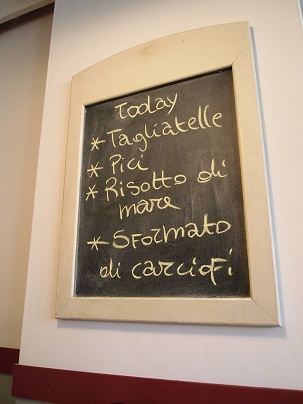 Today
* Tagliatelle
* Pici
* Risotto di
mare
* Sformato
di carciofi